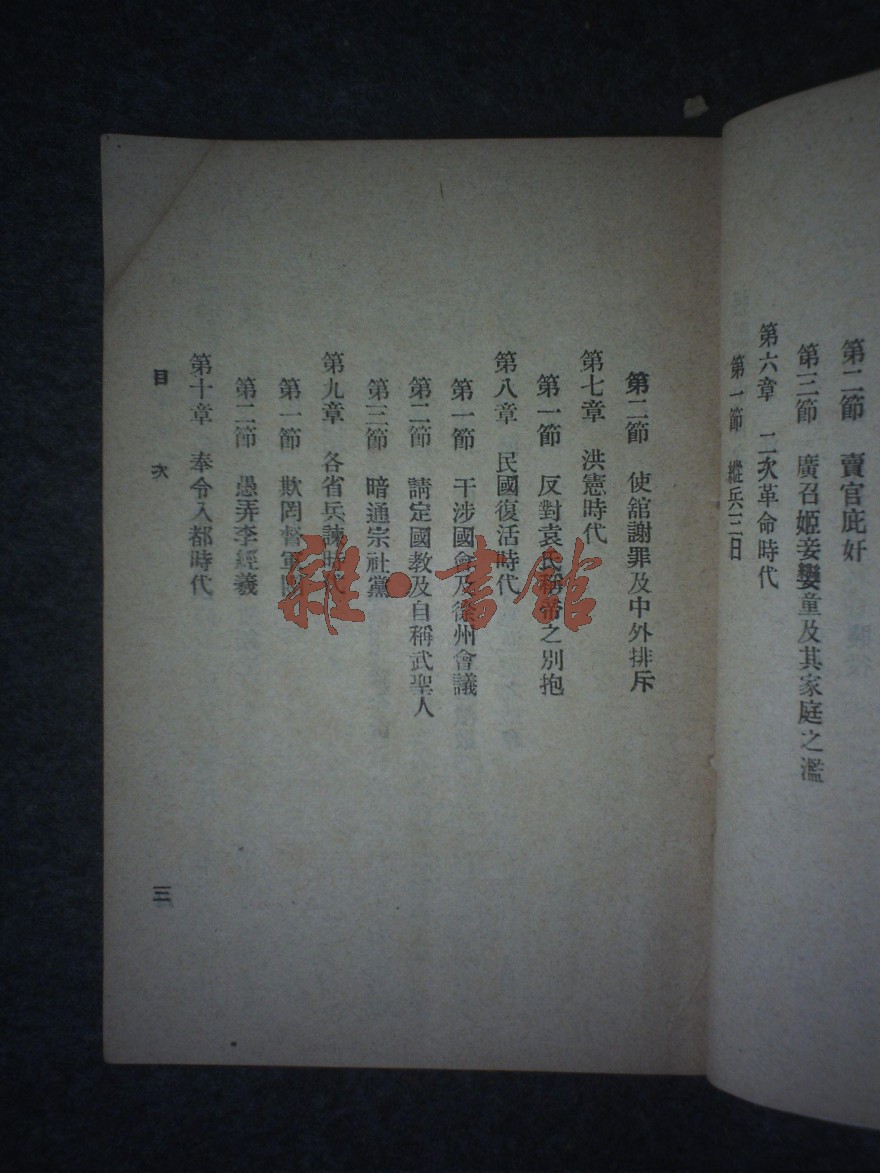 第二節 賣官庇奸
第三節 廣召姬妾孌童及其家庭之濫
第六章 二次革命時代
第一節 縱兵三日
第二節 使舘謝罪及中外排斥
第七章 洪憲時代
第一節 反對袁氏稱帝之別抱
第八章 民國復活時代
第一節 干涉國會及徐州會議
第二節 請定國教及自稱武聖人
第三節 暗通宗社黨
第九章 各省兵諫時代
第一節 欺罔督軍團
第二節 愚弄李經羲
第十章 奉令入都時代
目次
三
雜·書館